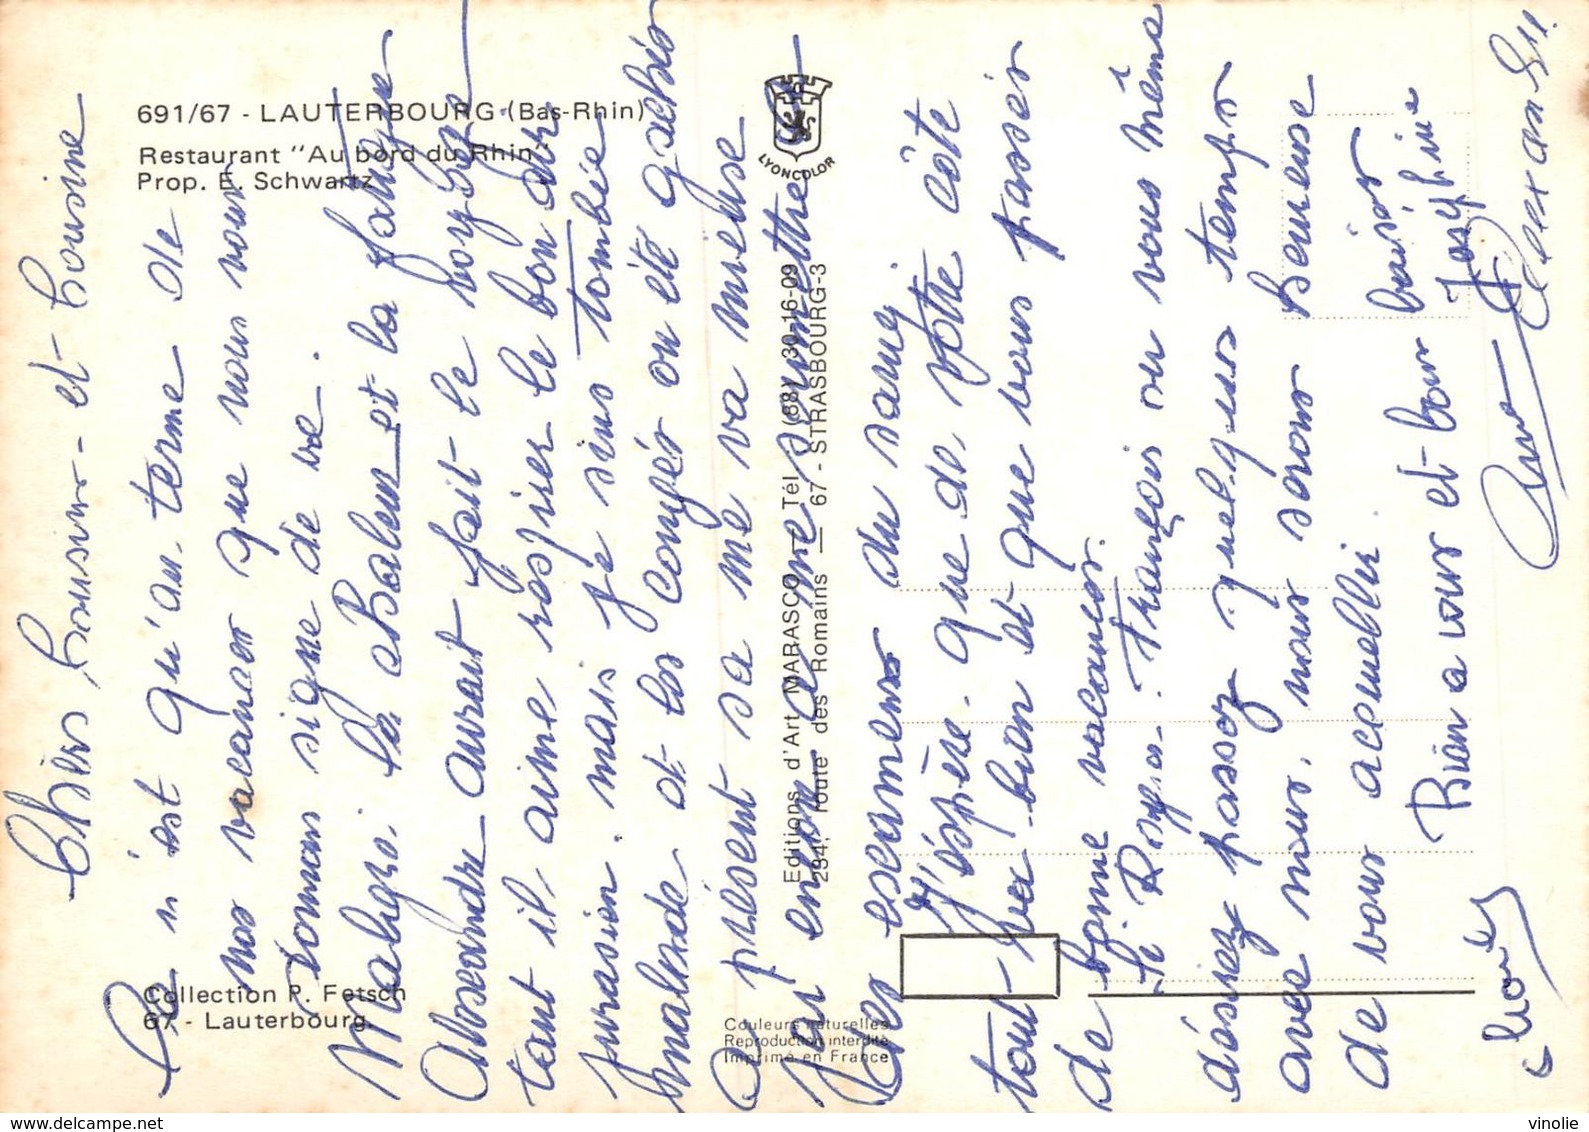 691/67 - LAUTERBOURG (Bas-Rhin)
Restaurant "Au bord du Rhin"
Prop. E. Schwartz
LYONCOLOR
Editions d'Art MARASCO — Tél (88) 30-16-09
234, route des Romains — 67 - STRASBOURG-3
Collection P. Fetsch
67 - Lauterbourg.
Couleurs naturelles
Reproduction interdite
Imprimé en France
Chers Cousins et Cousine
Ce n'est qu'au terme de
nos vacances que nous vous
donnons signe de vie.
Malgré la chaleur et la fatigue
Alexandre aurait fait le voyage
tant il aime respirer le bon air
jurassien. mais je suis tombée
malade et les congés on été gachés
A présent sa me va mieuse
J'ai encore a me soumettre à
des examens du sang
J'éspère que de votre côte
tout va bien et que vous passés
de bonne vacances.
Si Roger. François ou vous même
désirez passez quelques temps
avec nous, nous serons heureuse
de vous acceuellir
Bien a vous et bons baisers
Josephine
Alexandre
vinolie